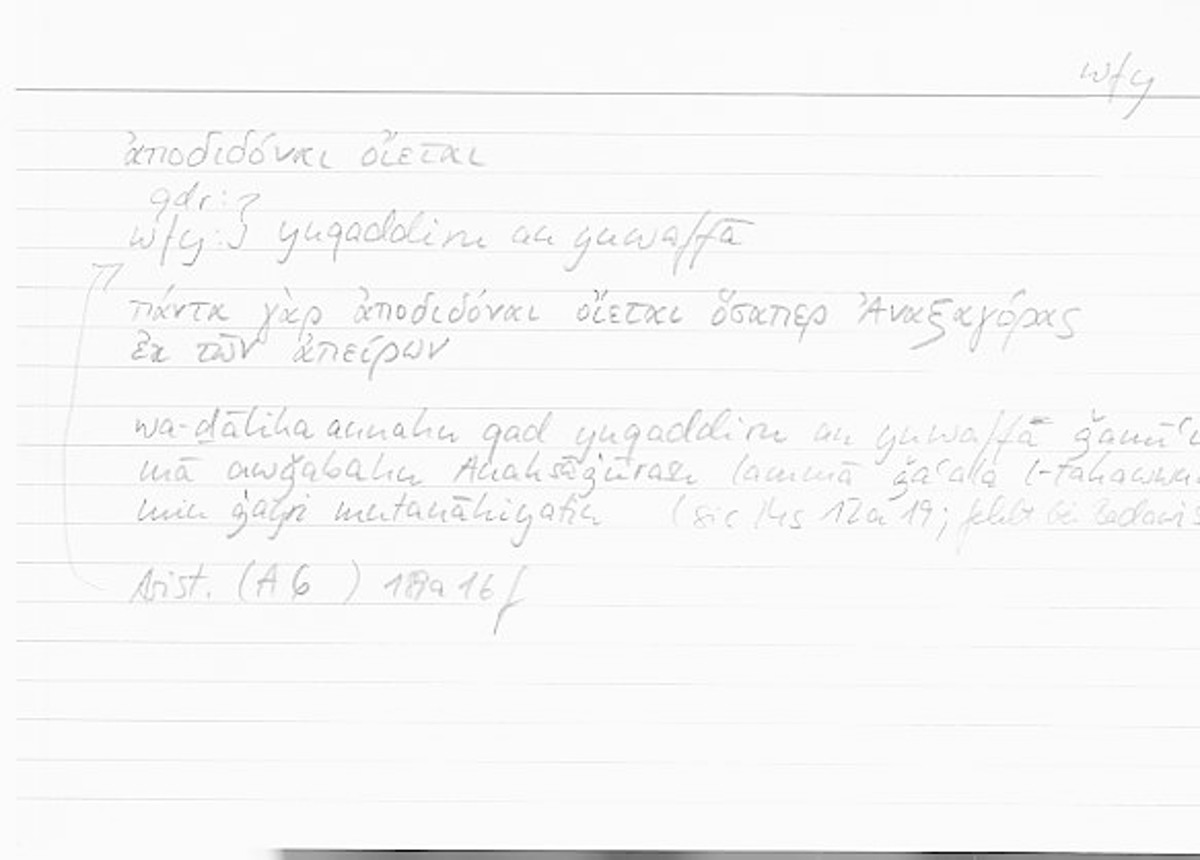 wfy
ἀποδιδόναι οἴεται
qdr: }
wfy: } yuqaddiru an yuwaffā
πάντα γὰρ ἀποδιδόναι οἴεται ὅσαπερ Ἀναξαγόρας
ἐκ τῶν ἀπείρων
wa-ḏālika annahu qad yuqaddiru an yuwaffā ǧamīʿ
mā awǧabahu Anaksāġūrasu lammā ǧaʿala l-takawwu
min ġayri mutanāhiyatin (sic Hs 17a 19; fehlt bei Badawi
Arist. (A 6 ) 189a 16 f